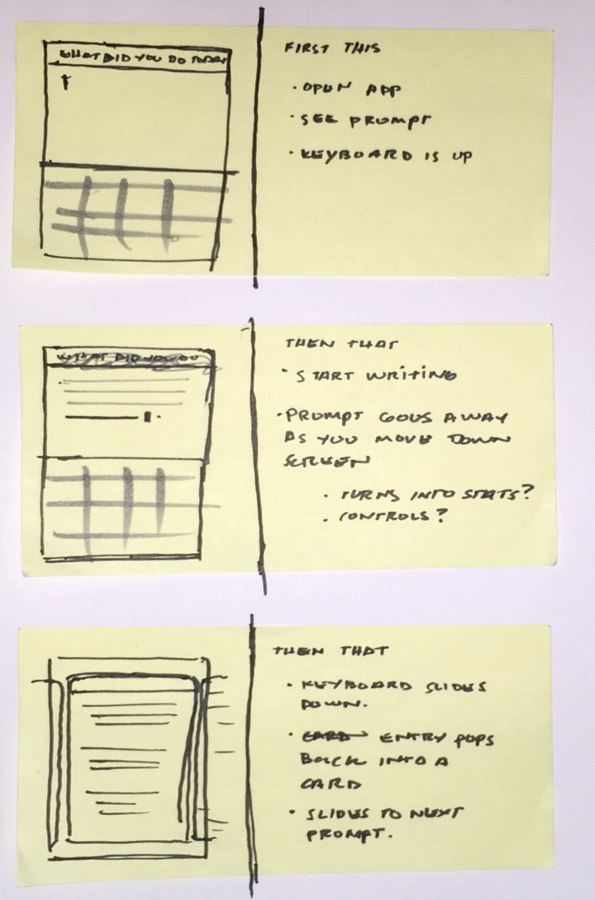 WHAT DID YOU DO TODAY
FIRST THIS
• OPEN APP
• SEE PROMPT
• KEYBOARD IS UP
WHAT DID YOU DO
THEN THAT
• START WRITING
• PROMPT GOES AWAY
AS YOU MOVE DOWN
SCREEN
• TURNS INTO STATS?
• CONTROLS?
THEN THAT
• KEYBOARD SLIDES
DOWN.
• CARD ENTRY POPS
BACK INTO A
CARD
• SLIDES TO NEXT
PROMPT.